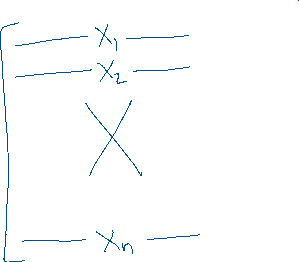 [ — x₁ —
— x₂ —
X
— xₙ —